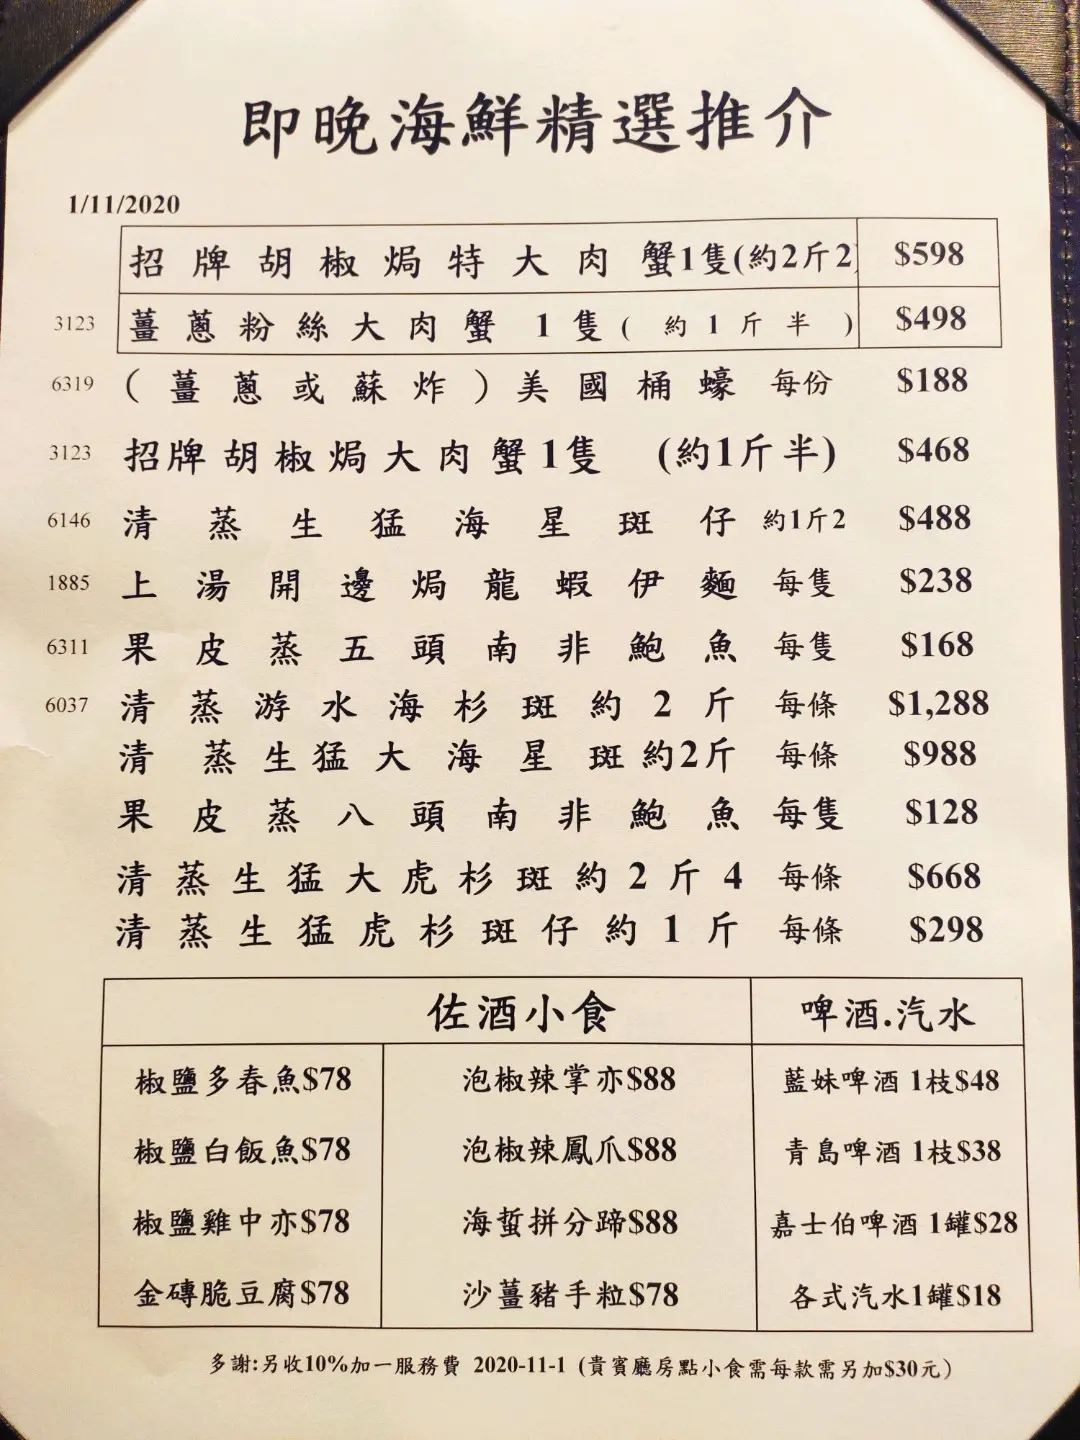 即晚海鮮精選推介
1/11/2020
招牌胡椒焗特大肉蟹1隻(約2斤2 $598
3123 薑蔥粉絲大肉蟹1隻(約1斤半) $498
6319 (薑蔥或蘇炸)美國桶蠔 每份 $188
3123 招牌胡椒焗大肉蟹1隻 (約1斤半) $468
6146 清蒸生猛海星斑仔 約1斤2 $488
1885 上湯開邊焗龍蝦伊麵 每隻 $238
6311 果皮蒸五頭南非鮑魚 每隻 $168
6037 清蒸游水海杉斑約2斤 每條 $1,288
清蒸生猛大海星斑約2斤 每條 $988
果皮蒸八頭南非鮑魚 每隻 $128
清蒸生猛大虎杉斑約2斤4 每條 $668
清蒸生猛虎杉斑仔約1斤 每條 $298
佐酒小食 啤酒.汽水
椒鹽多春魚$78 泡椒辣掌亦$88 藍妹啤酒 1枝$48
椒鹽白飯魚$78 泡椒辣鳳爪$88 青島啤酒 1枝$38
椒鹽雞中亦$78 海蜇拼分蹄$88 嘉士伯啤酒 1罐$28
金磚脆豆腐$78 沙薑豬手粒$78 各式汽水1罐$18
多謝:另收10%加一服務費 2020-11-1 (貴賓廳房點小食需每款需另加$30元)